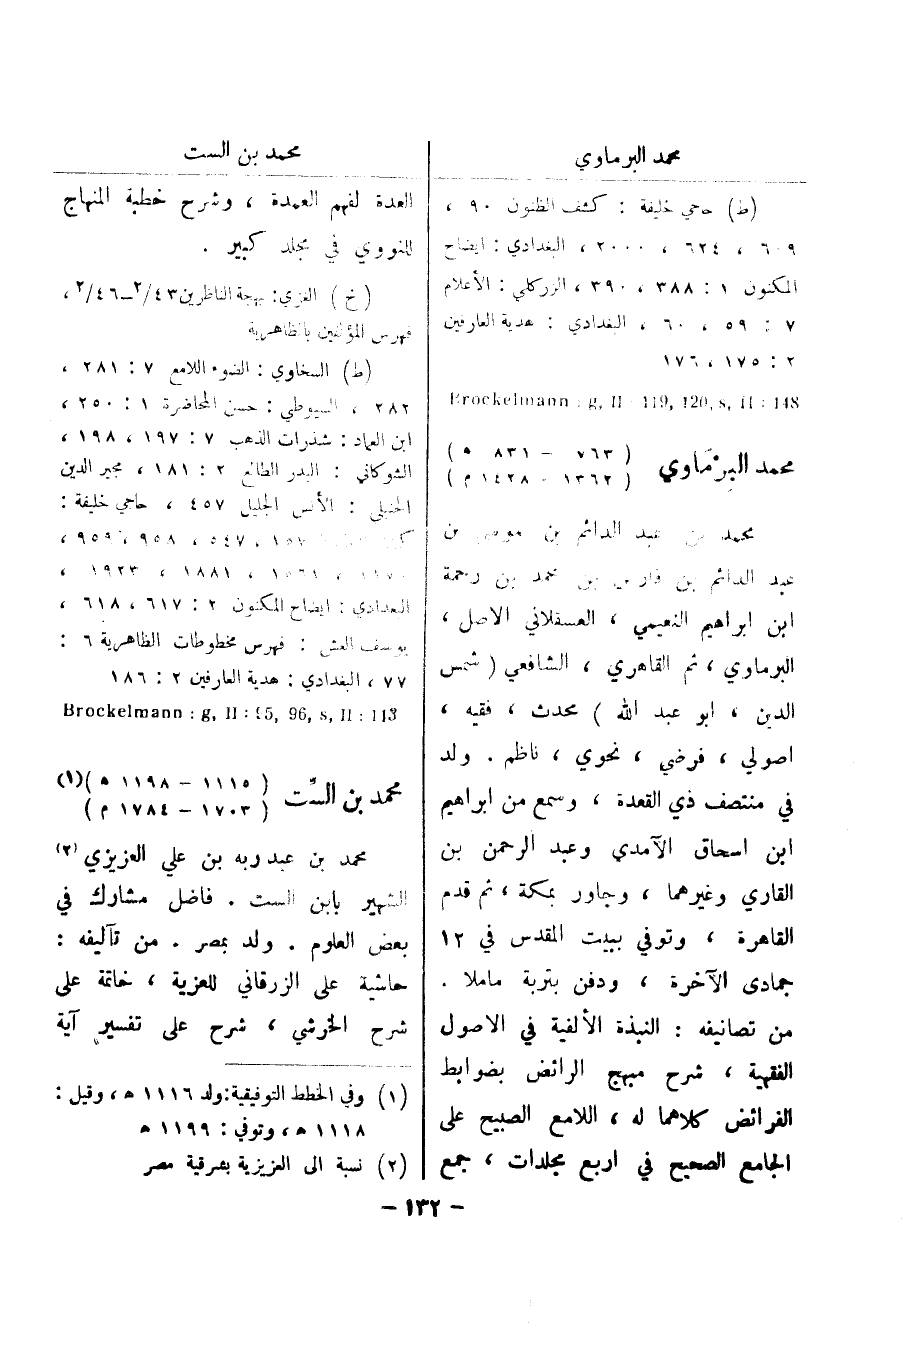 محمد البرماوي
(ط) حاجي خليفة : كشف الظنون ٩٠ ،
٦٠٩ ، ٦٢٤ ، ٢٠٠٠ ، البغدادي : ايضاح
المكنون ١ : ٣٨٨ ، ٣٩٠ ، الزركلي : الأعلام
٧ : ٥٩ ، ٦٠ ، البغدادي : هدية العارفين
٢ : ١٧٥ ، ١٧٦
Brockelmann : g, II : 119, 120, s, II : 148
محمد البِرْمَاوي ( ٧٦٣ – ٨٣١ ه )
( ١٣٦٢ – ١٤٢٨ م )
محمد بن عبد الدائم بن موسى بن
عبد الدائم بن فارس بن محمد بن رحمة
ابن ابراهيم النعيمي ، العسقلاني الاصل ،
البرماوي ، ثم القاهري ، الشافعي ( شمس
الدين ، ابو عبد الله ) محدث ، فقيه ،
اصولي ، فرضي ، نحوي ، ناظم . ولد
في منتصف ذي القعدة ، وسمع من ابراهيم
ابن اسحاق الآمدي وعبد الرحمن بن
القاري وغيرهما ، وجاور بمكة ، ثم قدم
القاهرة ، وتوفي ببيت المقدس في ١٢
جمادى الآخرة ، ودفن بتربة ماملا .
من تصانيفه : النبذة الألفية في الاصول
الفقهية ، شرح مبهج الرائض بضوابط
الفرائض كلاهما له ، اللامع الصبيح على
الجامع الصحيح في اربع مجلدات ، جمع
محمد بن الست
العدة لفهم العمدة ، وشرح خطبة المنهاج
للنووي في مجلد كبير .
(خ) الغزي: بهجة الناظرين ٢/٤٣–٢/٤٦ ،
فهرس المؤلفين بالظاهرية
(ط) السخاوي : الضوء اللامع ٧ : ٢٨١ ،
٢٨٢ ، السيوطي : حسن المحاضرة ١ : ٢٥٠ ،
ابن العماد : شذرات الذهب ٧ : ١٩٧ ، ١٩٨ ،
الشوكاني : البدر الطالع ٢ : ١٨١ ، مجير الدين
الحنبلي : الأنس الجليل ٤٥٧ ، حاجي خليفة :
٥٤٧ ، ٩٥٨ ، ٩٥٩ ،
١٨٨١ ، ١٩٢٣ ،
البغدادي : ايضاح المكنون ٢ : ٦١٧ ، ٦١٨ ،
يوسف العش : فهرس مخطوطات الظاهرية ٦ :
٧٧ ، البغدادي : هدية العارفين ٢ : ١٨٦
Brockelmann : g, II : 95, 96, s, II : 113
محمد بن السِّت ( ١١١٥ – ١١٩٨ ه )(١)
( ١٧٠٣ – ١٧٨٤ م )
محمد بن عبد ربه بن علي العزيزي (٢)
الشهير بابن الست . فاضل مشارك في
بعض العلوم . ولد بمصر . من تآليفه :
حاشية على الزرقاني للعزية ، خاتمة على
شرح الخرشي ، شرح على تفسير آية
(١) وفي الخطط التوفيقية : ولد ١١١٦ ه ، وقيل :
١١١٨ ه ، وتوفي : ١١٩٩ ه
(٢) نسبة الى العزيزية بشرقية مصر
– ١٣٢ –